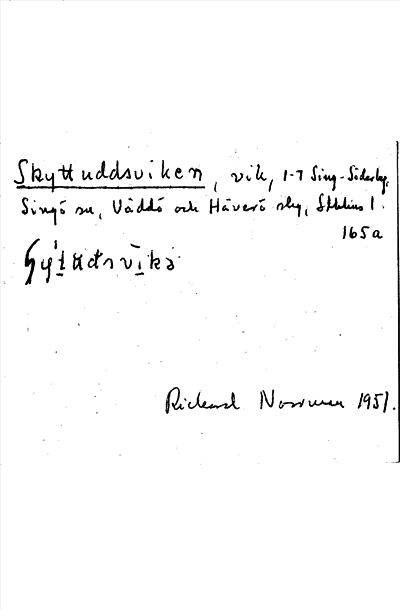 Skyttuddsviken, vik, 1-7 Sing-Söderby,
Singö sn, Väddö och Häverö skg, Sthlms l.
165a
Rickard Norrman 1951.